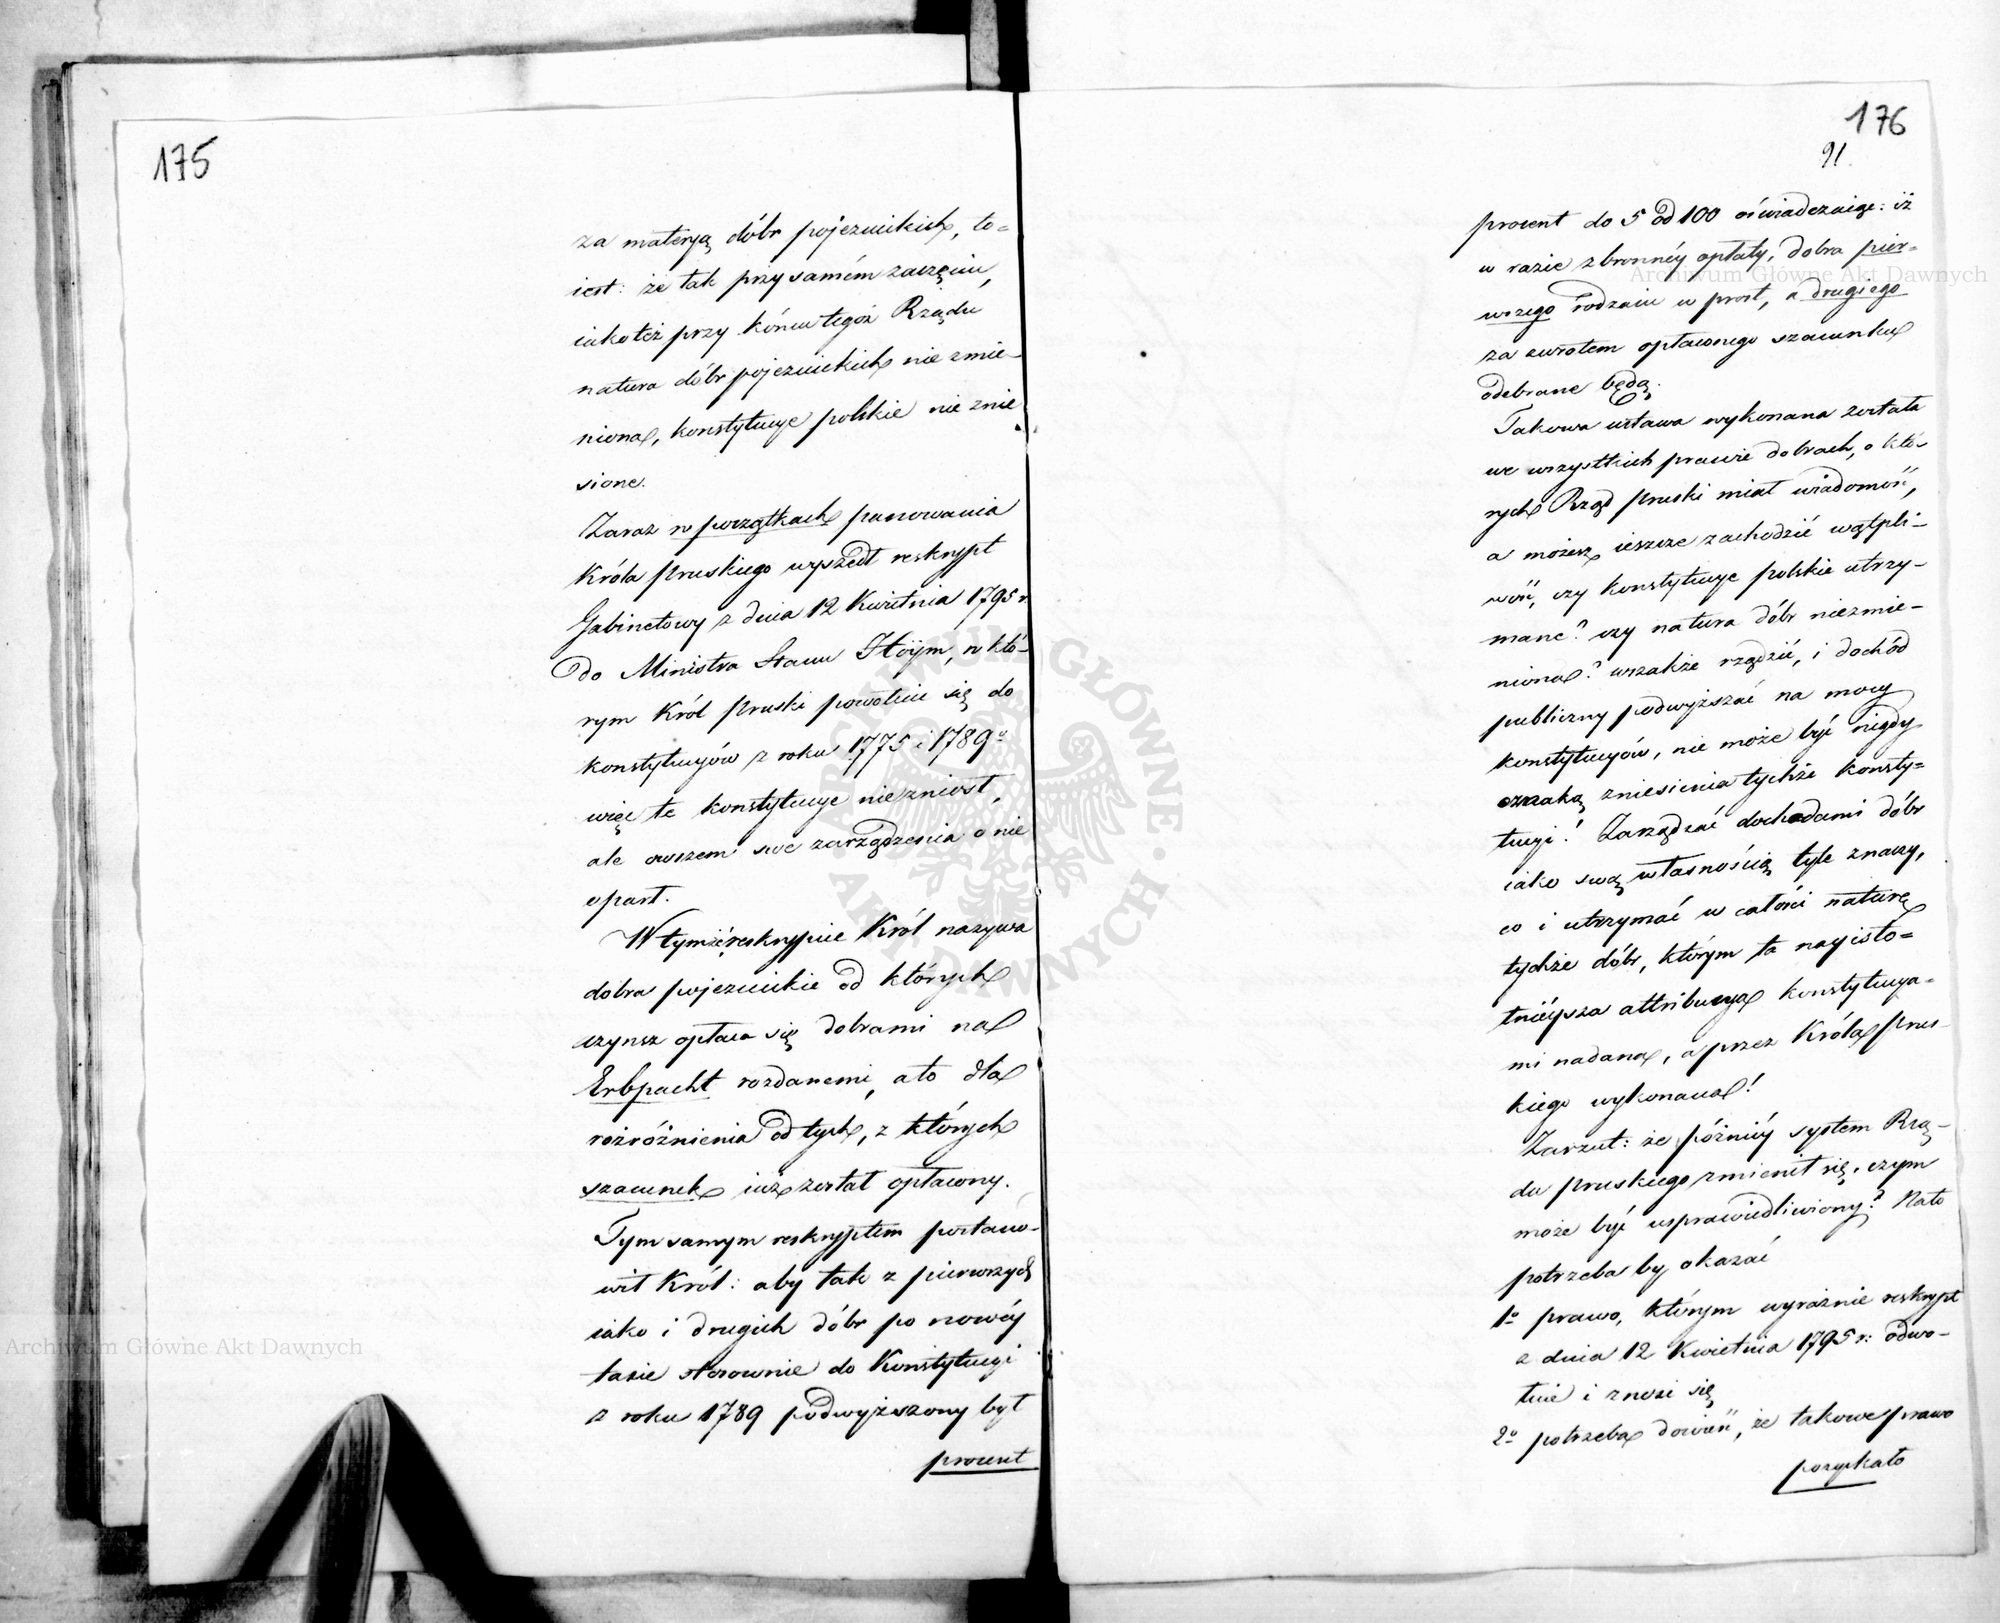 175
za materyą dóbr pojezuickich, to=
iest: że tak przy samém zaczęciu,
iako też przy końcu tegoż Rządu
natura dóbr pojezuickich nie zmie-
niona, konstytucye polskie nie znie
sione.
Zaraz w początkach panowania
Króla pruskiego wyszedł reskrypt
Gabinetowy z dnia 12 Kwietnia 1795 r.
do Ministra Stanu Hoÿm, w któ-
rym Król pruski powołuie się do
konstytucyów z roku 1775 i 1789º
więc te konstytucye nie zniosł,
ale owszem swe zarządzenia o nie
oparł.
W tymże reskrypcie Król nazywa
dobra pojezuickie od których
czynsz opłaca się dobrami na
Erbpacht rozdanemi, a to dla
rozróżnienia od tych, z których
szacunek iuż został opłacony.
Tym samym reskryptem postano-
wił Król: aby tak z pierwszych
iako i drugich dóbr po nowéy
taxie stosownie do Konstytucyi
z roku 1789 podwyższony był
procent
176
91.
procent do 5 od 100 oświadczaiąc: iż
w razie zbronnéy opłaty, dobra pier=
wszego rodzaiu w prost, a drugiego
za zwrotem opłaconego szacunku
odebrane będą.
Takowa ustawa wykonana została
we wszystkich prawie dobrach, o któ-
rych Rząd pruski miał wiadomość,
a możesz ieszcze zachodzić wątpli-
wość, czy konstytucye polskie utrzy-
mane? czy natura dóbr niezmie-
niona? wszakże rządzić, i dochód
publiczny podwyższać na mocy
konstytucyów, nie może być nigdy
oznaką zniesienia tychże konsty=
tucyi! Zarządzać dochodami dóbr
iako swą własnością tyle znaczy,
co i utrzymać w całości naturę
tychże dóbr, którym ta nayisto=
tniéysza attribucya konstytucya=
mi nadana, a przez Króla prus-
kiego wykonana!
Zarzut: że późniéy system Rzą-
du pruskiego zmienił się, czym
może być usprawiedliwiony? Na to
potrzeba by okazać
1º prawo, którym wyraźnie reskrypt
z dnia 12 Kwietnia 1795 r: odwo-
łuie i znosi się
2º potrzeba dowieść, że takowe prawo
pozyskało
Archiwum Główne Akt Dawnych
Archiwum Główne Akt Dawnych
ARCHIWUM GŁÓWNE AKT DAWNYCH